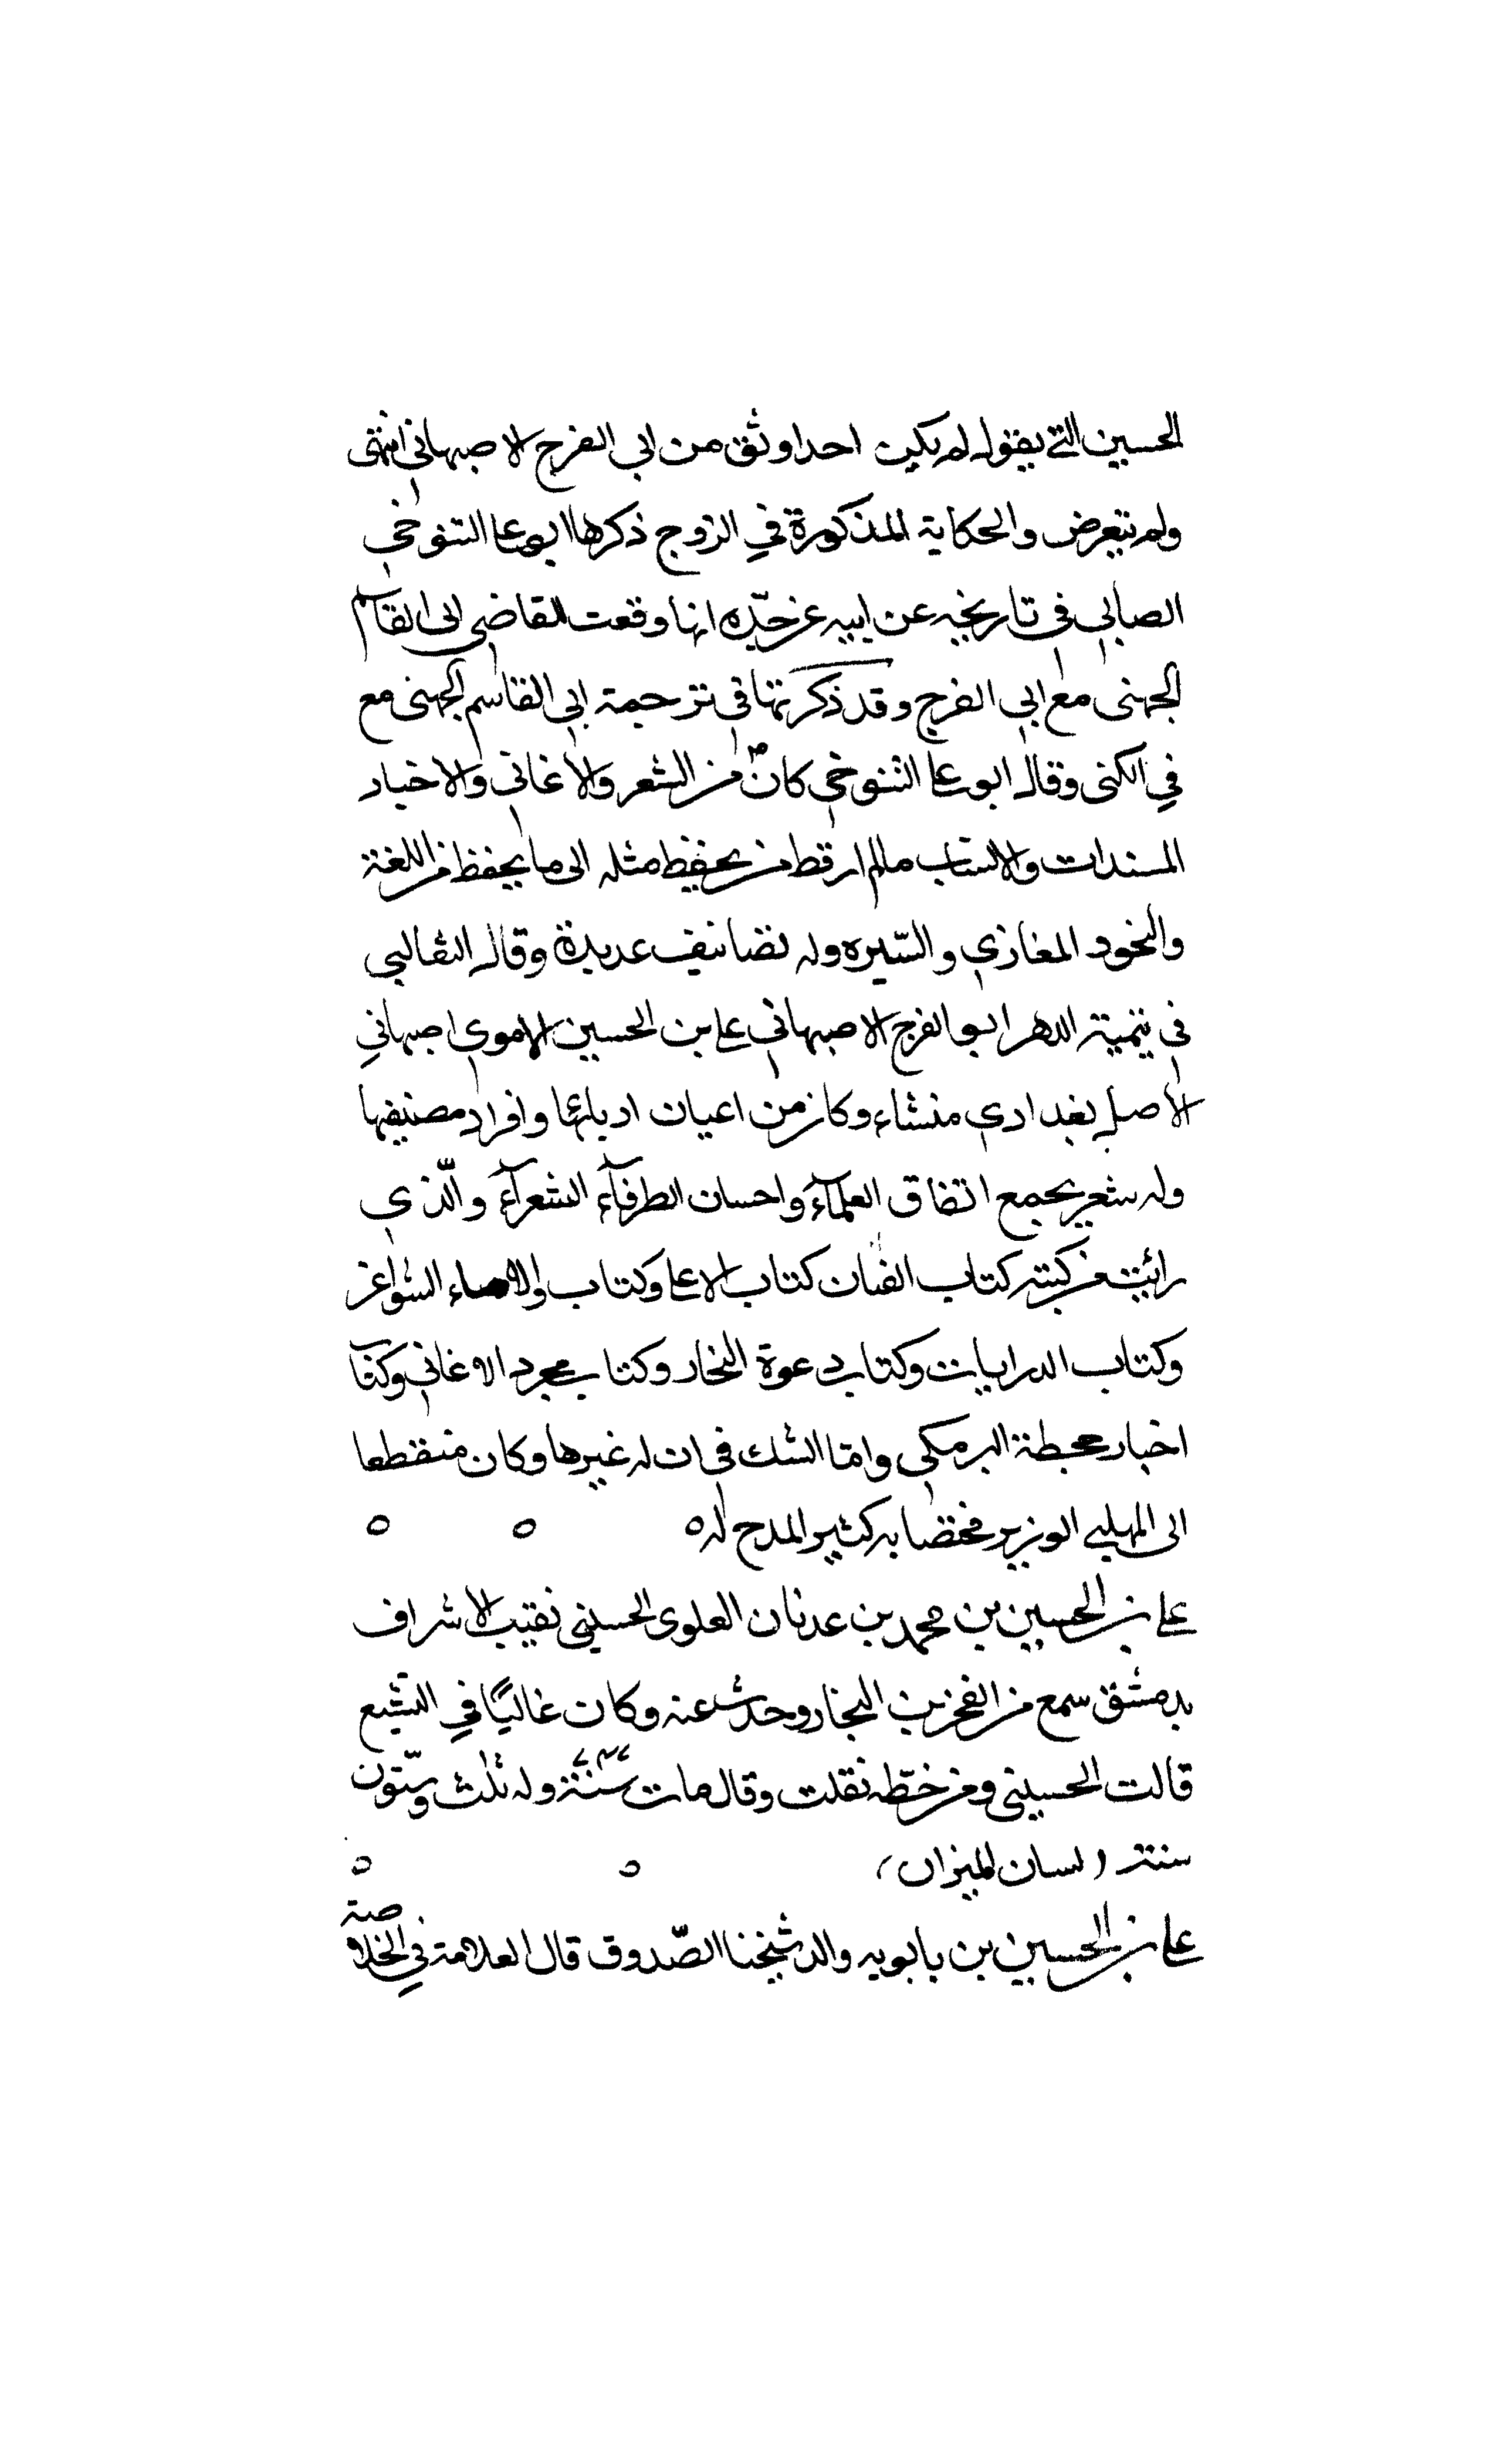 الحسين التي يقوله لم يكن احد اوثق من ابي الفرج الاصبهاني انتهى
ولم نتعرض والحكاية المذكورة في الزوج ذكرها ابو علي التنوخي
الصابي في تاريخه عن ابيه عن جده انها وقعت للقاضي ابى القاسم
الجهنى مع ابي الفرج وقد ذكرتها في ترجمة ابي القاسم الجهنى مع
في الكنى وقال ابو علي التنوخي كان من الشعر والاغاني والاخبار
المسندات والانساب مالم ار قط من يحفظ مثله الى ما يحفظ من اللغة
والنحو د المغازي والسّيره وله تصانيف عديدة وقال الثعالبي
في يتيمة الدهر ابو الفرج الاصبهاني علي بن الحسين الاموي اصبهاني
الاصل بغدادي منشاء وكان من اعيان ادبائها وافراد مصنفيها
وله شعر يجمع اتقان العلمآء واحسان الظرفآء الشعرآء والّذي
رائيت من كتبه كتاب القيان كتاب الاغا وكتاب والاماء الشواعر
وكتاب الديارات وكتاب دعوة النجار وكتاب مجرد الاغاني وكتاب
اخبار جحظة البرمكي وامّا الشك في ان له غيرها وكان منقطعا
الى المهلبي الوزير مختصا به كثير المدح له ٥ ٥ ٥
علي بن الحسين بن محمد بن عدنان العلوي الحسيني نقيب الاشراف
بدمشق سمع من الفخر بن البخار وحدث عنه وكان غاليًا في التشيع
قالت الحسيني ومن خطّه نقلت وقال مات سنة وله ثلث وستّون
سنة (لسان الميزان) ٥ ٥
علي بن الحسين بن بابويه والد شيخنا الصّدوق قال العلامة في الخلاصة